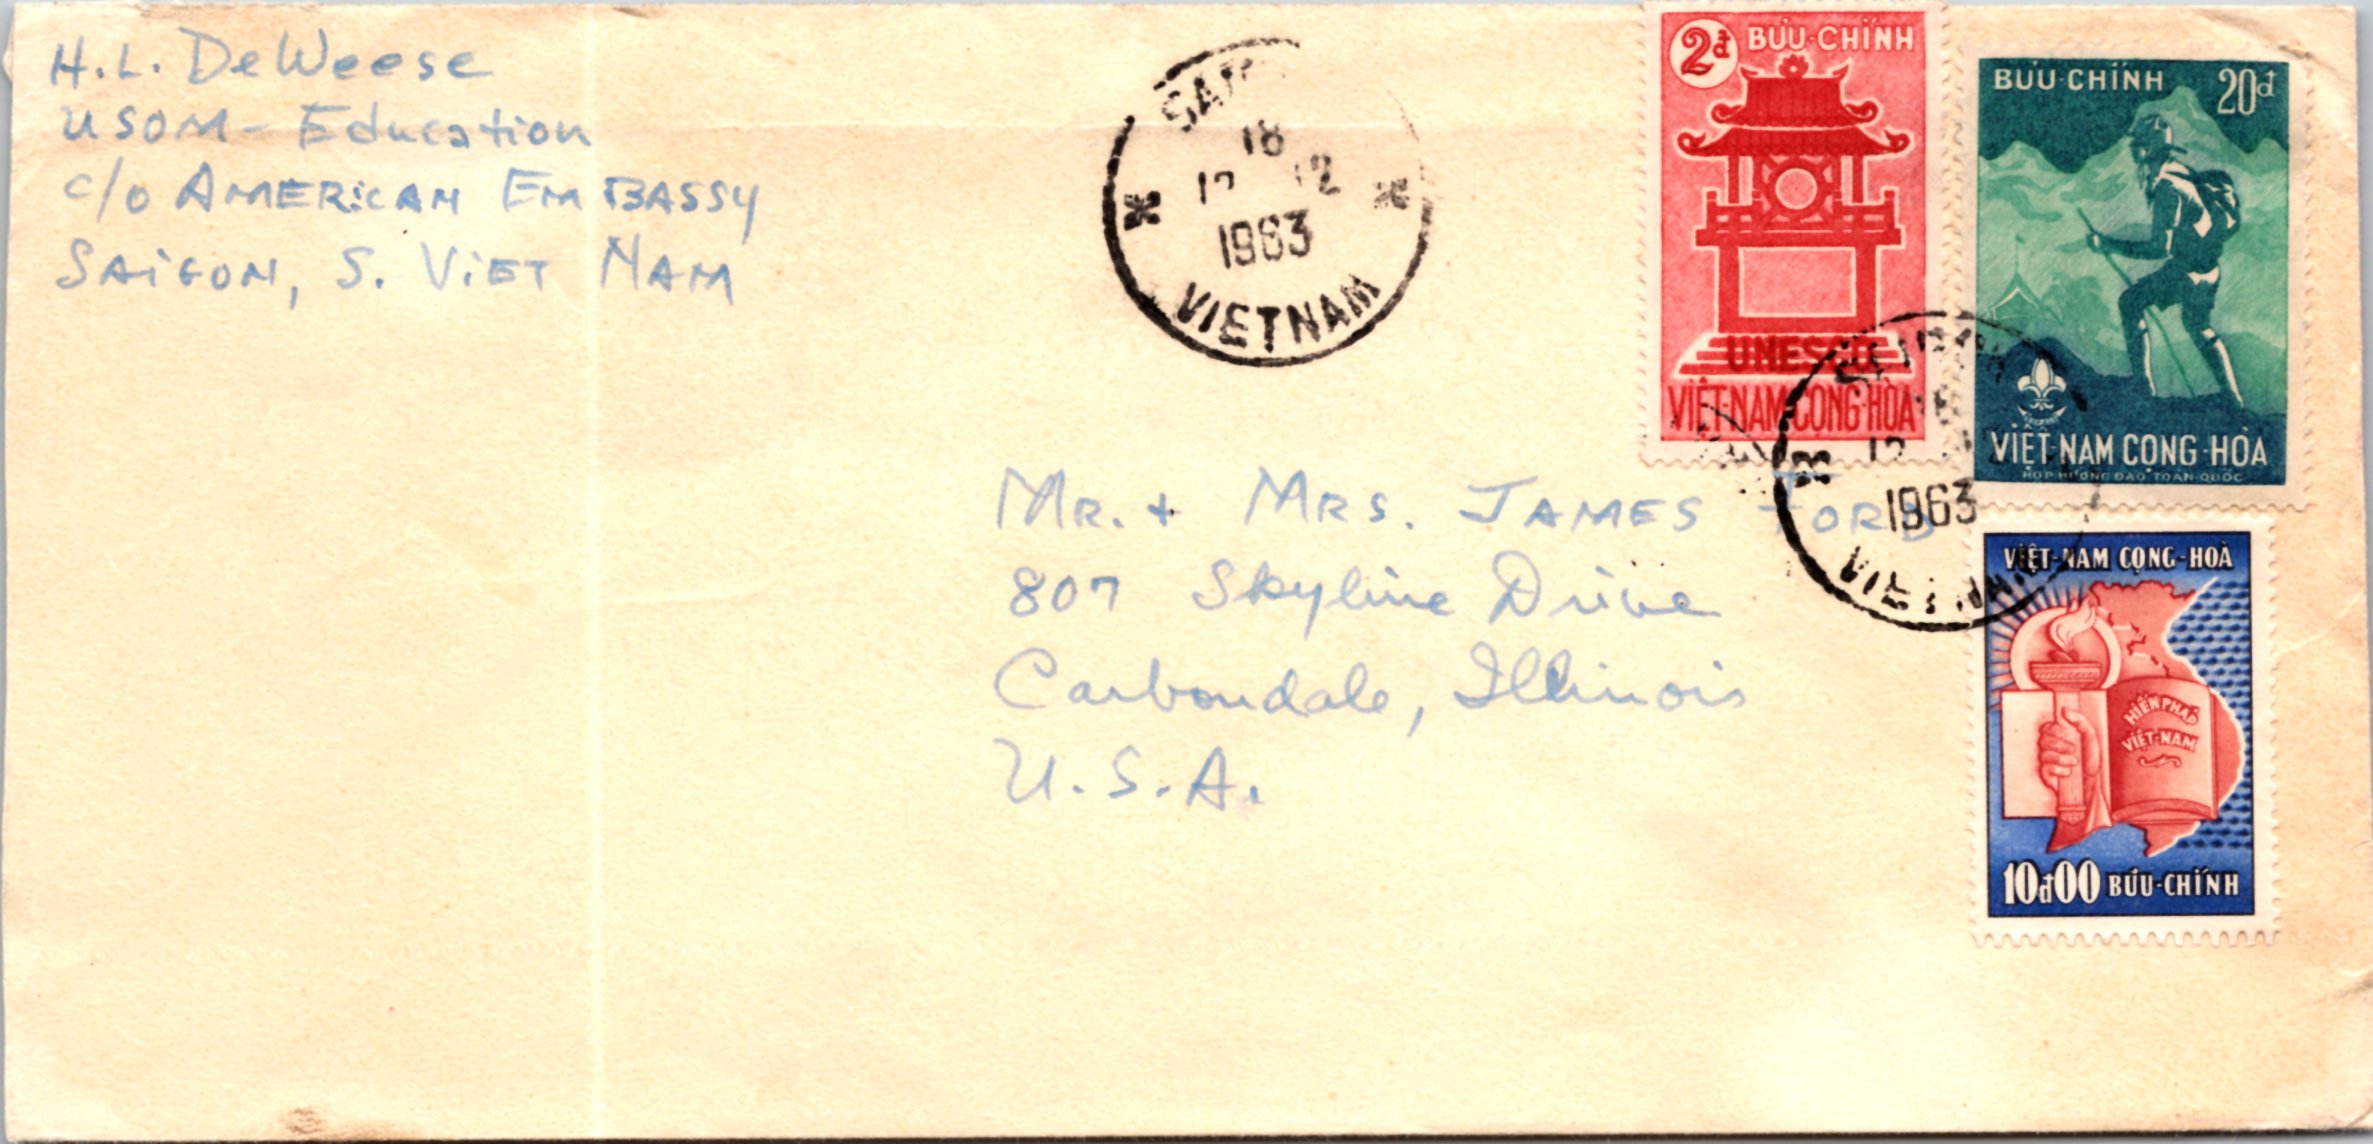 H.L. DeWeese
USOM - Education
c/o AMERICAN EMBASSY
SAIGON, S. VIET NAM
18
12
1963
VIETNAM
2đ BƯU-CHÍNH
UNESCO
VIỆT-NAM CỘNG-HÒA
BƯU-CHÍNH 20đ
VIỆT-NAM CỘNG-HÒA
HỌP HƯỚNG ĐẠO TOÀN QUỐC
1963
MR. + MRS. JAMES FORD
807 Skyline Drive
Carbondale, Illinois
U.S.A.
VIỆT-NAM CỘNG-HOÀ
HIẾN PHÁP
VIỆT-NAM
10đ00 BƯU-CHÍNH